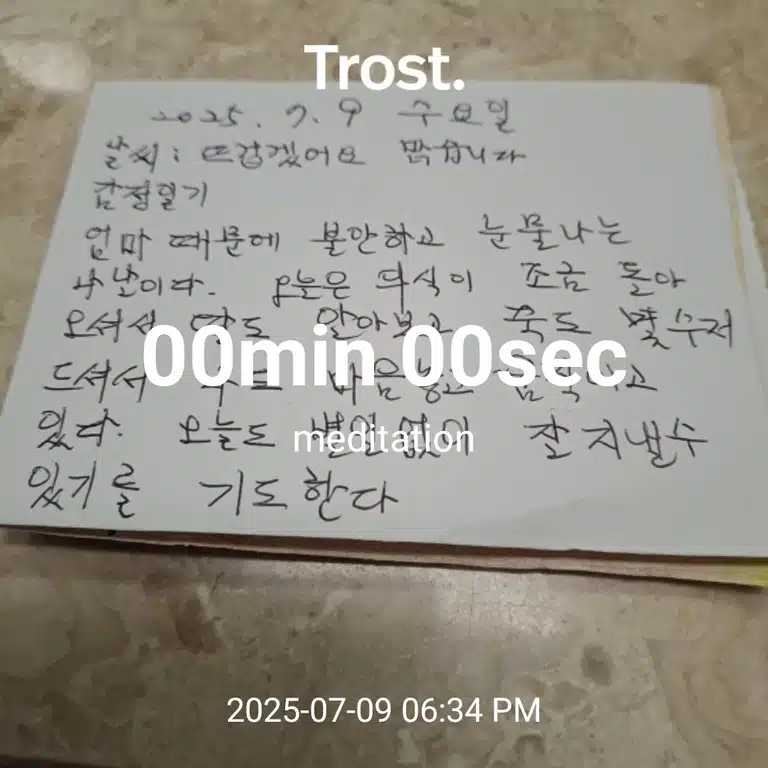 Trost.
2025. 7. 9 수요일
날씨 : 뜨겁겠어요 맑습니다
감정일기
엄마 때문에 불안하고 눈물나는
나날이다. 오늘은 의식이 조금 돌아
오셔서 딸도 알아보고 죽도 몇 수저
00min 00sec
드셔서
있다. 오늘도 별일 없이 잘 지낼 수
meditation
있기를 기도한다
2025-07-09 06:34 PM